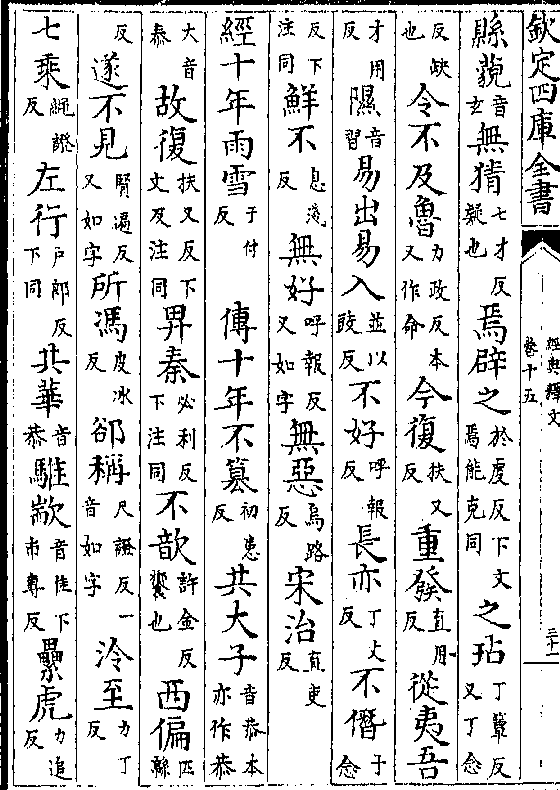 欽定四庫全書
經典釋文
卷十五
三十一
縣藐音玄無猜七才反疑也焉辟之於虔反下文焉能克同之玷丁簟反又丁念
反缺也令不及魯力政反本又作命今復扶又反重發直用反從夷吾
才用反隰音習易出易入並以豉反不好呼報反長亦丁丈反不僭子念
反下注同鮮不息淺反無好呼報反又如字無惡烏路反宋治直吏反
經十年雨雪于付反傳十年不篡初患反共大子音恭本亦作恭
大音泰故復扶又反下文及注同畀秦必利反下注同不歆許金反饗也西偏匹緜
反遂不見賢遍反又如字所馮皮冰反郤稱尺證反一音如字泠至力丁反
七乗繩證反左行戶郎反下同共華音恭騅歂音隹下市專反纍虎力追反